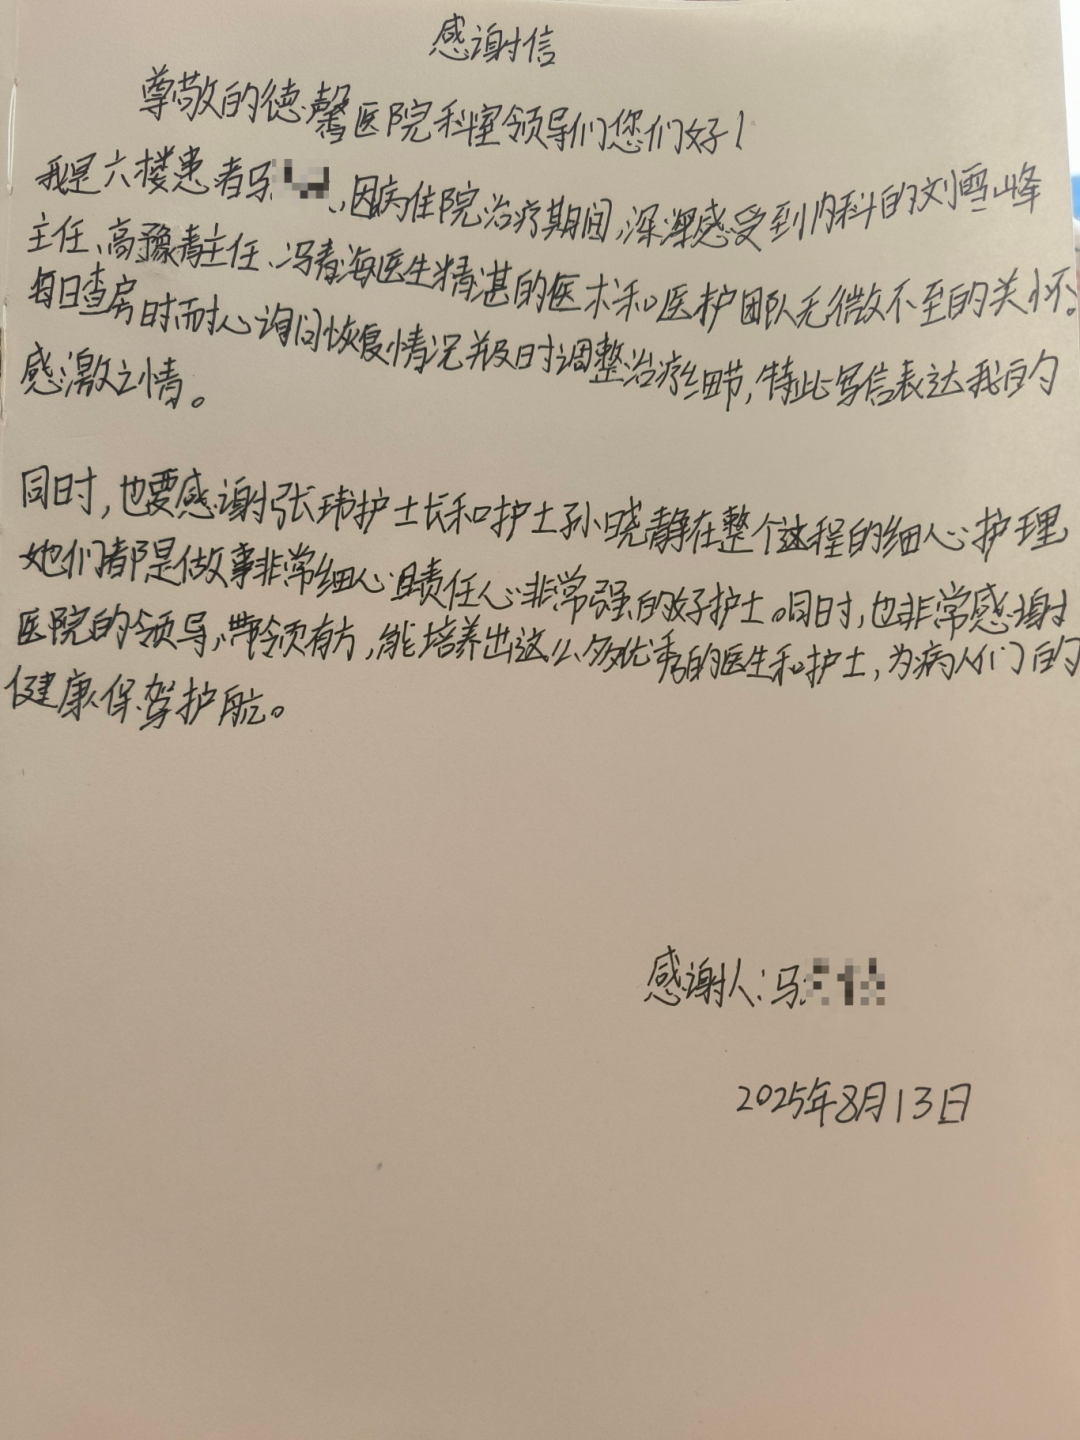 感谢信
尊敬的德馨医院科室领导们您们好！
我是六楼患者马、因病住院治疗期间,深深感受到内科的刘雪峰
主任、高豫青主任、冯青海医生精湛的医术和医护团队无微不至的关怀。
每日查房时耐心询问恢复情况并及时调整治疗细节,特此写信表达我的
感激之情。
同时,也要感谢张玮护士长和护士孙晓静在整个过程的细心护理
她们都是做事非常细心且责任心非常强的好护士。同时,也非常感谢
医院的领导,带领有方,能培养出这么多优秀的医生和护士,为病人们的
健康保驾护航。
感谢人:马
2025年8月13日